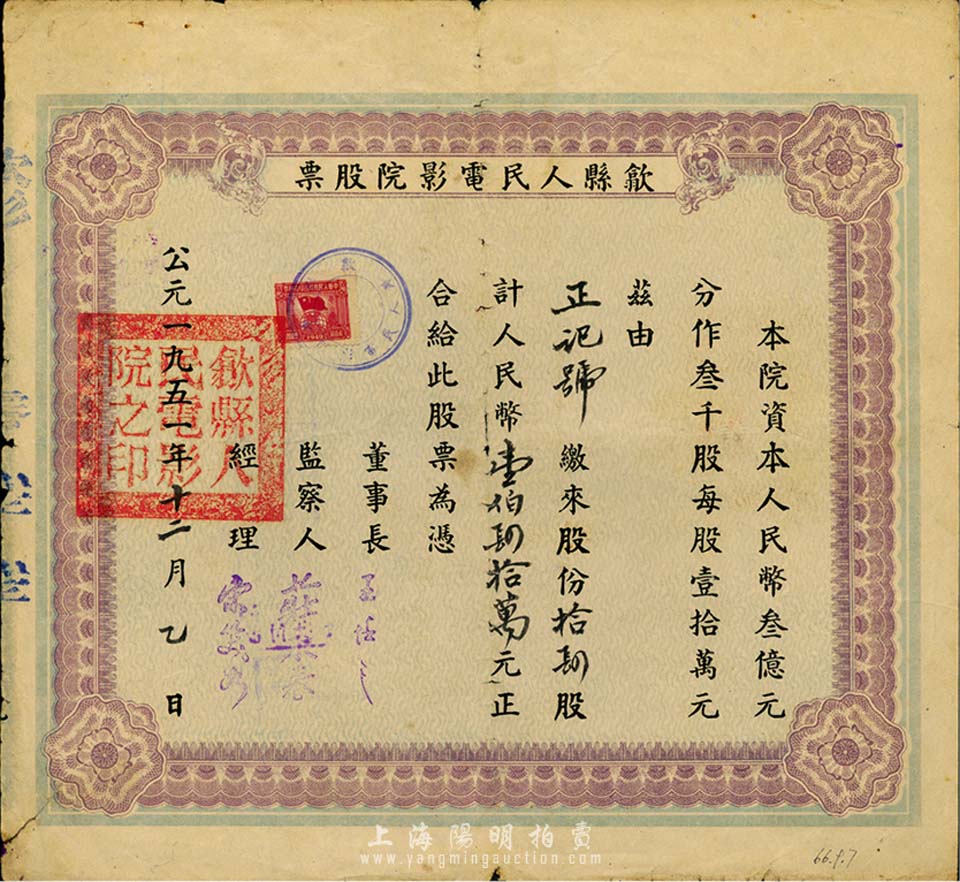 歙縣人民電影院股票
本院資本人民幣叁億元
分作叁千股每股壹拾萬元
茲由
正記號繳來股份拾肆股
計人民幣壹佰肆拾萬元正
合給此股票為憑
董事長
監察人
經理
公元一九五一年十二月乙日
歙縣人民電影院之印
上海陽明拍賣
www.yangmingauction.com
66.9.7